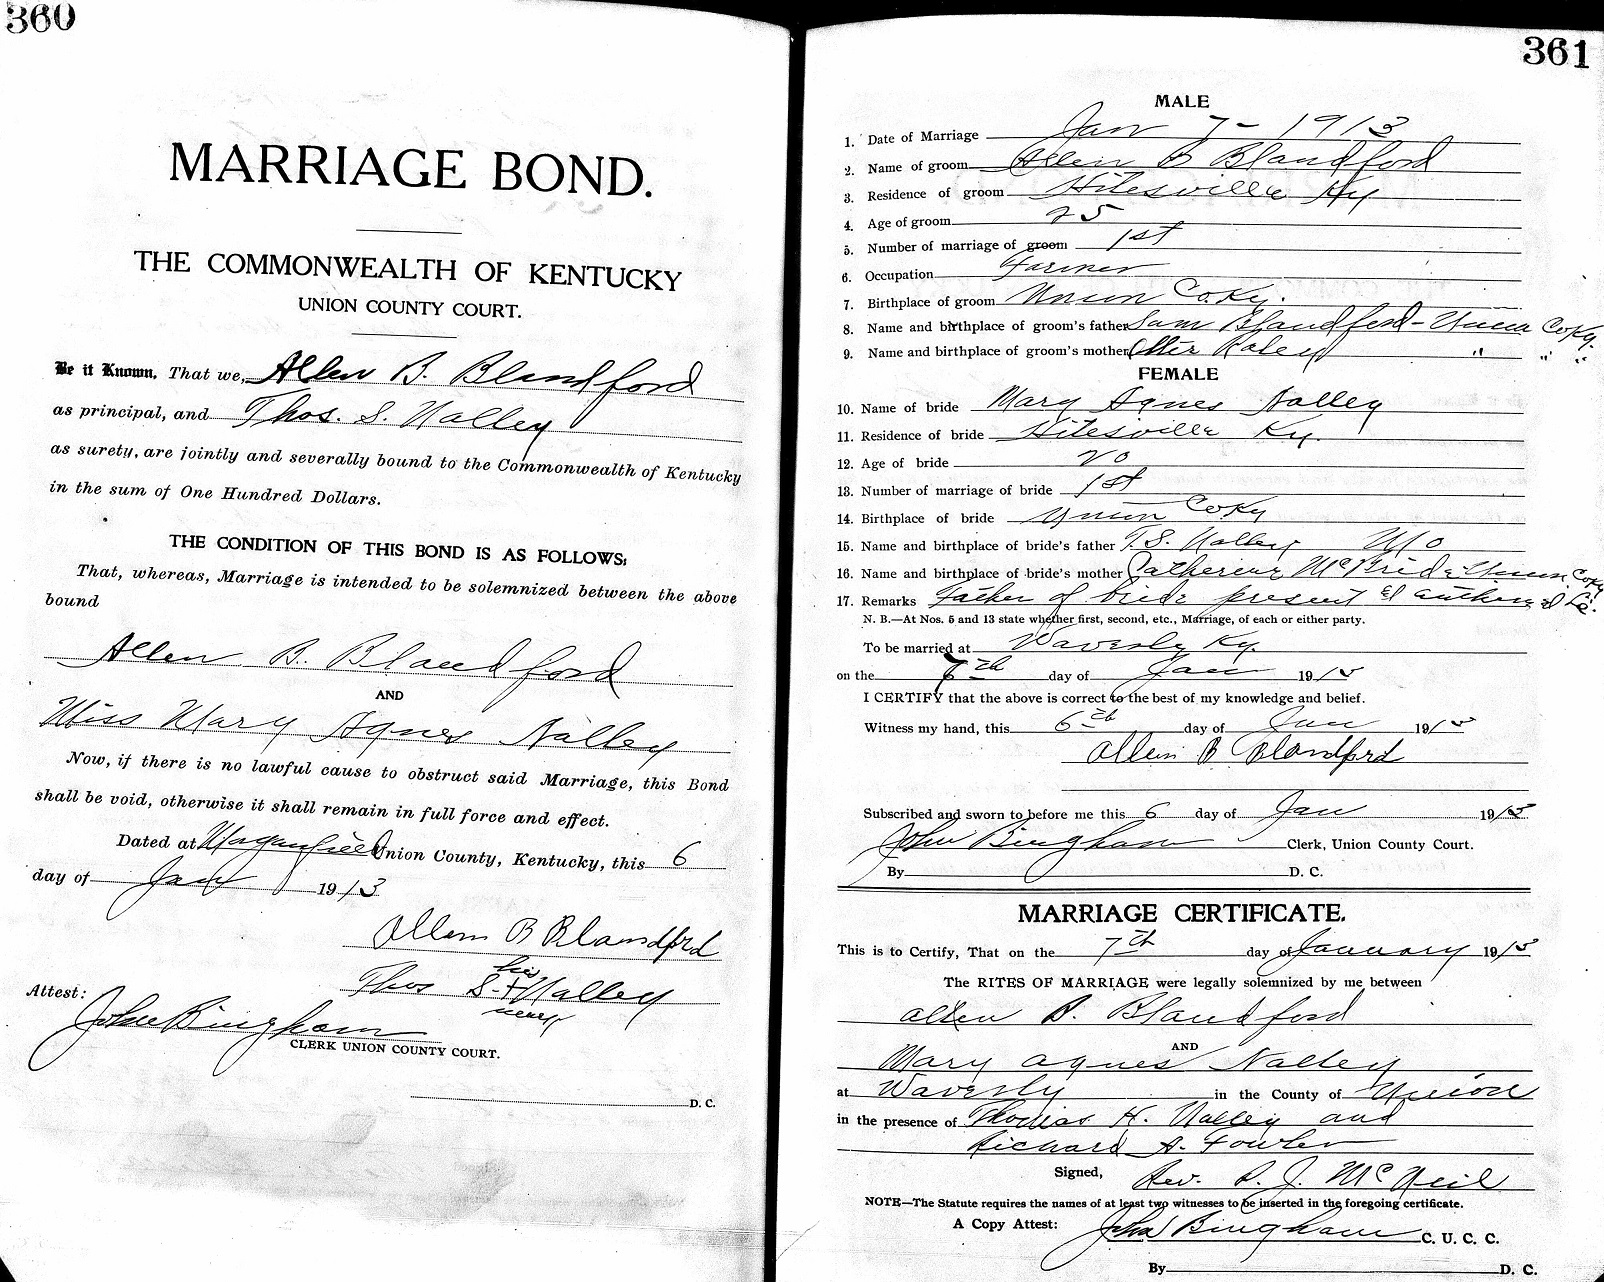 360
MARRIAGE BOND.
THE COMMONWEALTH OF KENTUCKY
UNION COUNTY COURT.
Be it Known, That we, Allen B. Blandford
as principal, and Thos. S. Nalley
as surety, are jointly and severally bound to the Commonwealth of Kentucky
in the sum of One Hundred Dollars.
THE CONDITION OF THIS BOND IS AS FOLLOWS:
That, whereas, Marriage is intended to be solemnized between the above
bound
Allen B. Blandford
AND
Miss Mary Agnes Nalley
Now, if there is no lawful cause to obstruct said Marriage, this Bond
shall be void, otherwise it shall remain in full force and effect.
Dated at Morganfield Union County, Kentucky, this 6
day of Jan 1913
Allen B Blandford
his
Thos S. + Nalley
mark
Attest:
John Bingham
CLERK UNION COUNTY COURT.
D. C.
361
MALE
1. Date of Marriage Jan 7 - 1913
2. Name of groom Allen B Blandford
3. Residence of groom Hitesville Ky
4. Age of groom 25
5. Number of marriage of groom 1st
6. Occupation Farmer
7. Birthplace of groom Union Co Ky.
8. Name and birthplace of groom's father Sam Blandford - Union Co Ky.
9. Name and birthplace of groom's mother Raley " " "
FEMALE
10. Name of bride Mary Agnes Nalley
11. Residence of bride Hitesville Ky.
12. Age of bride 20
13. Number of marriage of bride 1st
14. Birthplace of bride Union Co Ky
15. Name and birthplace of bride's father T. S. Nalley Mo
16. Name and birthplace of bride's mother Catherine McBride Union Co Ky
17. Remarks Father of bride present & authorized Li.
N. B.—At Nos. 5 and 13 state whether first, second, etc., Marriage, of each or either party.
To be married at Waverly Ky.
on the 7th day of Jan 1913
I CERTIFY that the above is correct to the best of my knowledge and belief.
Witness my hand, this 6th day of Jan 1913
Allen B Blandford
Subscribed and sworn to before me this 6 day of Jan 1913
John Bingham Clerk, Union County Court.
By D. C.
MARRIAGE CERTIFICATE.
This is to Certify, That on the 7th day of January 1913
The RITES OF MARRIAGE were legally solemnized by me between
Allen B. Blandford
AND
Mary Agnes Nalley
at Waverly in the County of Union
in the presence of Thomas H. Nalley and
Richard A. Fowler
Signed, Rev. R. J. McNeil
NOTE—The Statute requires the names of at least two witnesses to be inserted in the foregoing certificate.
A Copy Attest: John Bingham C. U. C. C.
By D. C.